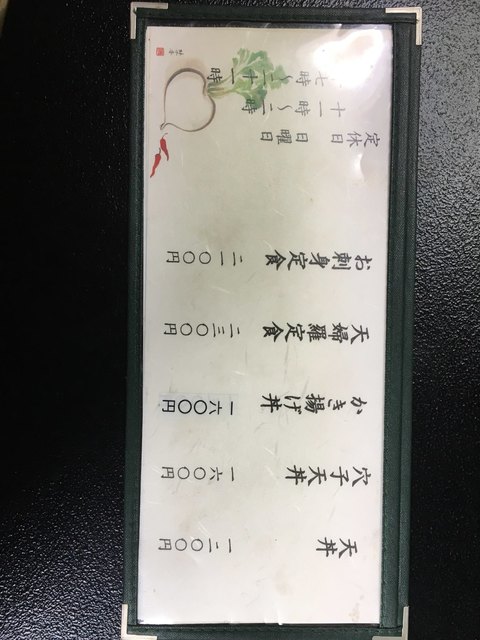 天丼 一二〇〇円
穴子天丼 一六〇〇円
かき揚げ丼 一六〇〇円
天婦羅定食 二三〇〇円
お刺身定食 二一〇〇円
定休日 日曜日
十一時～二時
十七時～二十一時